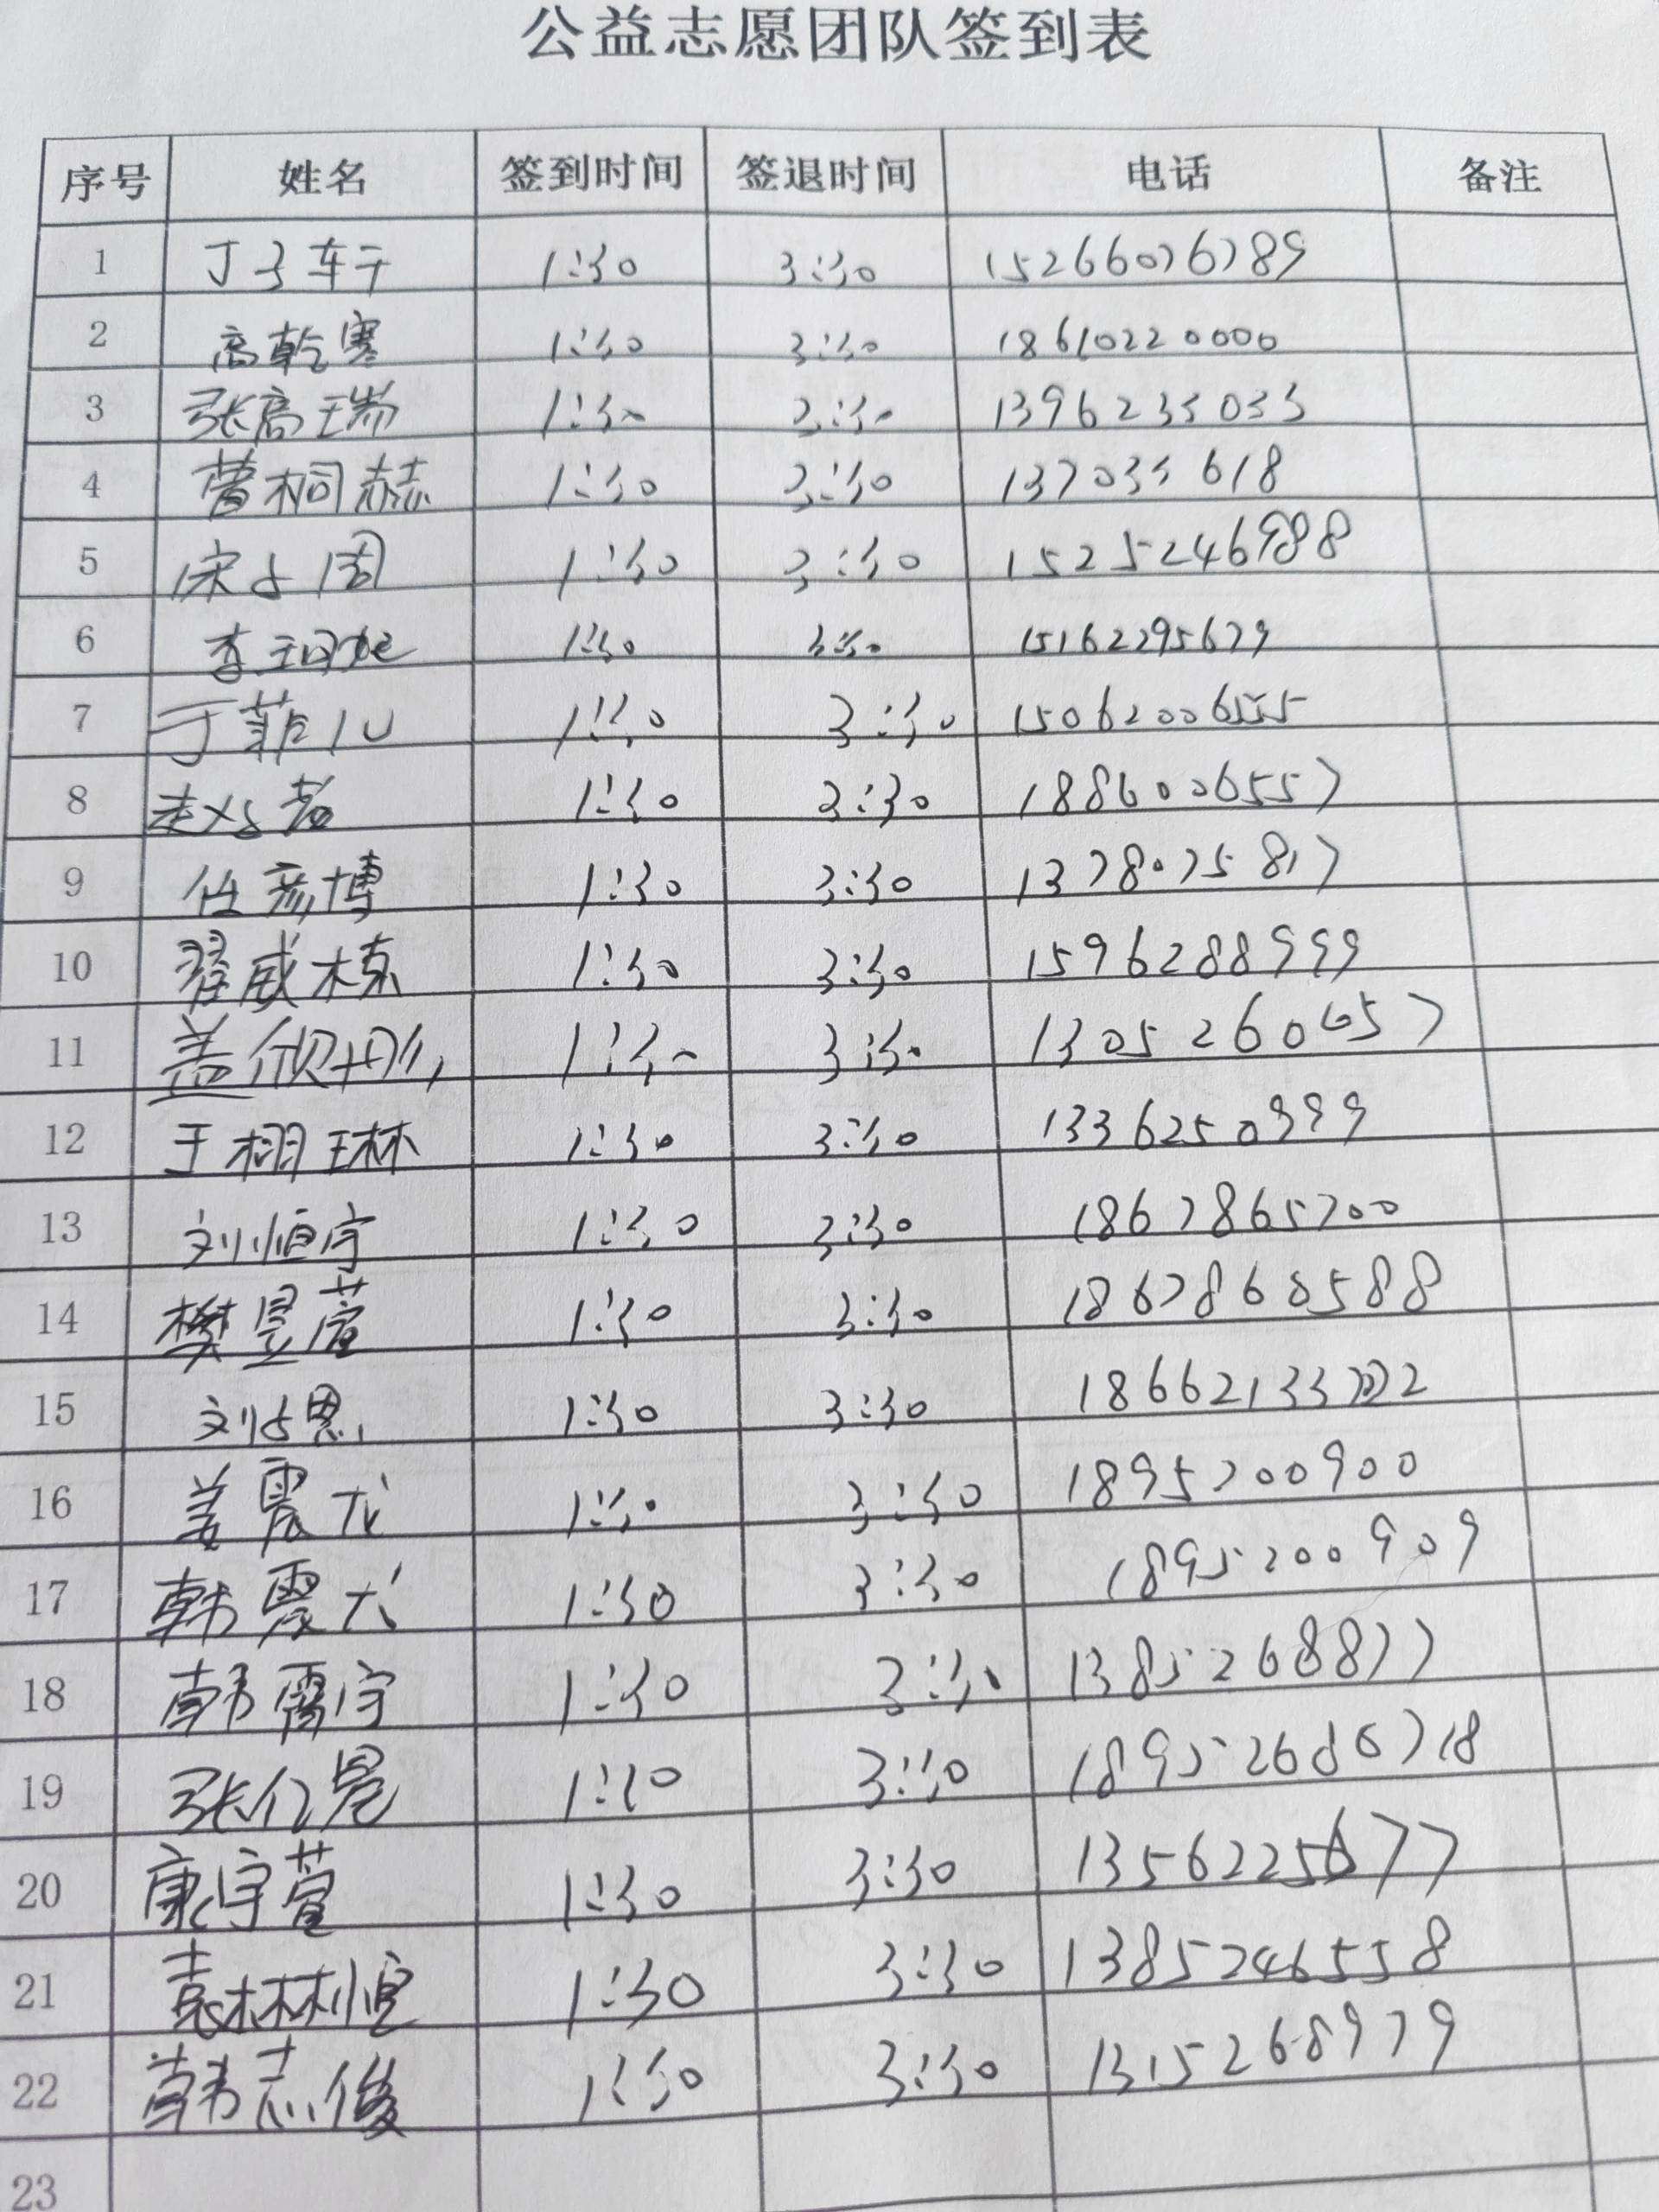 公益志愿团队签到表
序号 姓名 签到时间 签退时间 电话 备注
1 丁子轩 1:30 3:30 15266076789
2 高乾骞 1:30 3:30 18610220000
3 张高瑞 1:30 3:30 1396235033
4 曹桐赫 1:30 3:30 137035618
5 1:30 3:30 1525246988
6 1:30 3:30 15162295679
7 于菲儿 1:30 3:30 15062006555
8 1:30 3:30 18860006557
9 任彦博 1:30 3:30 1378075817
10 翟威栋 1:30 3:30 1596288999
11 盖颀彤 1:30 3:30 1305260657
12 于栩琳 1:30 3:30 1336250999
13 刘恒宇 1:30 3:30 1867865700
14 樊昱萱 1:30 3:30 18678660588
15 1:30 3:30
16 姜震龙 1:30 3:30 1895200900
17 韩震 1:30 3:30 1895200909
18 韩霄宇 1:30 3:30 1385268877
19 张亿 1:10 3:30
20 康宇萱 1:30 3:30 1356225677
21 袁林恒 1:30 3:30 1385246558
22 韩志俊 1:30 3:30 1315268979
23